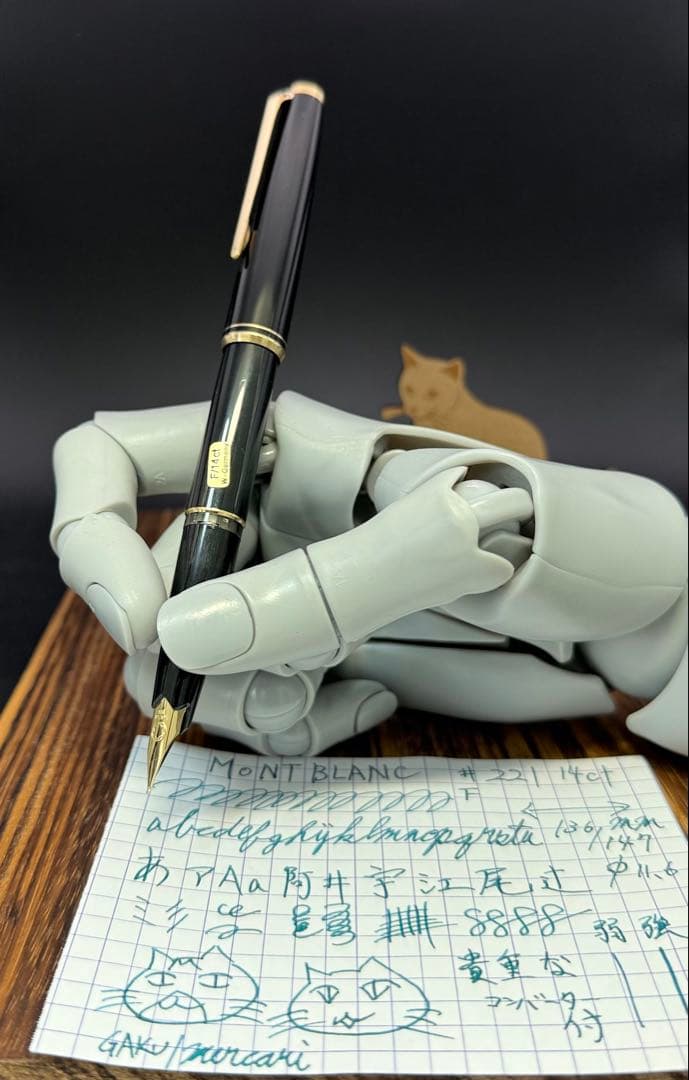 F/14ct
W. Germany
MONTBLANC # 221 14ct
F
abcdefghijklmnopqrstu 136/147 mm
あ ア A a 阿 井 宇 江 尾 辻 φ11.6
8888 弱 強
貴重な
コンバーター
付
GAKU/mercari